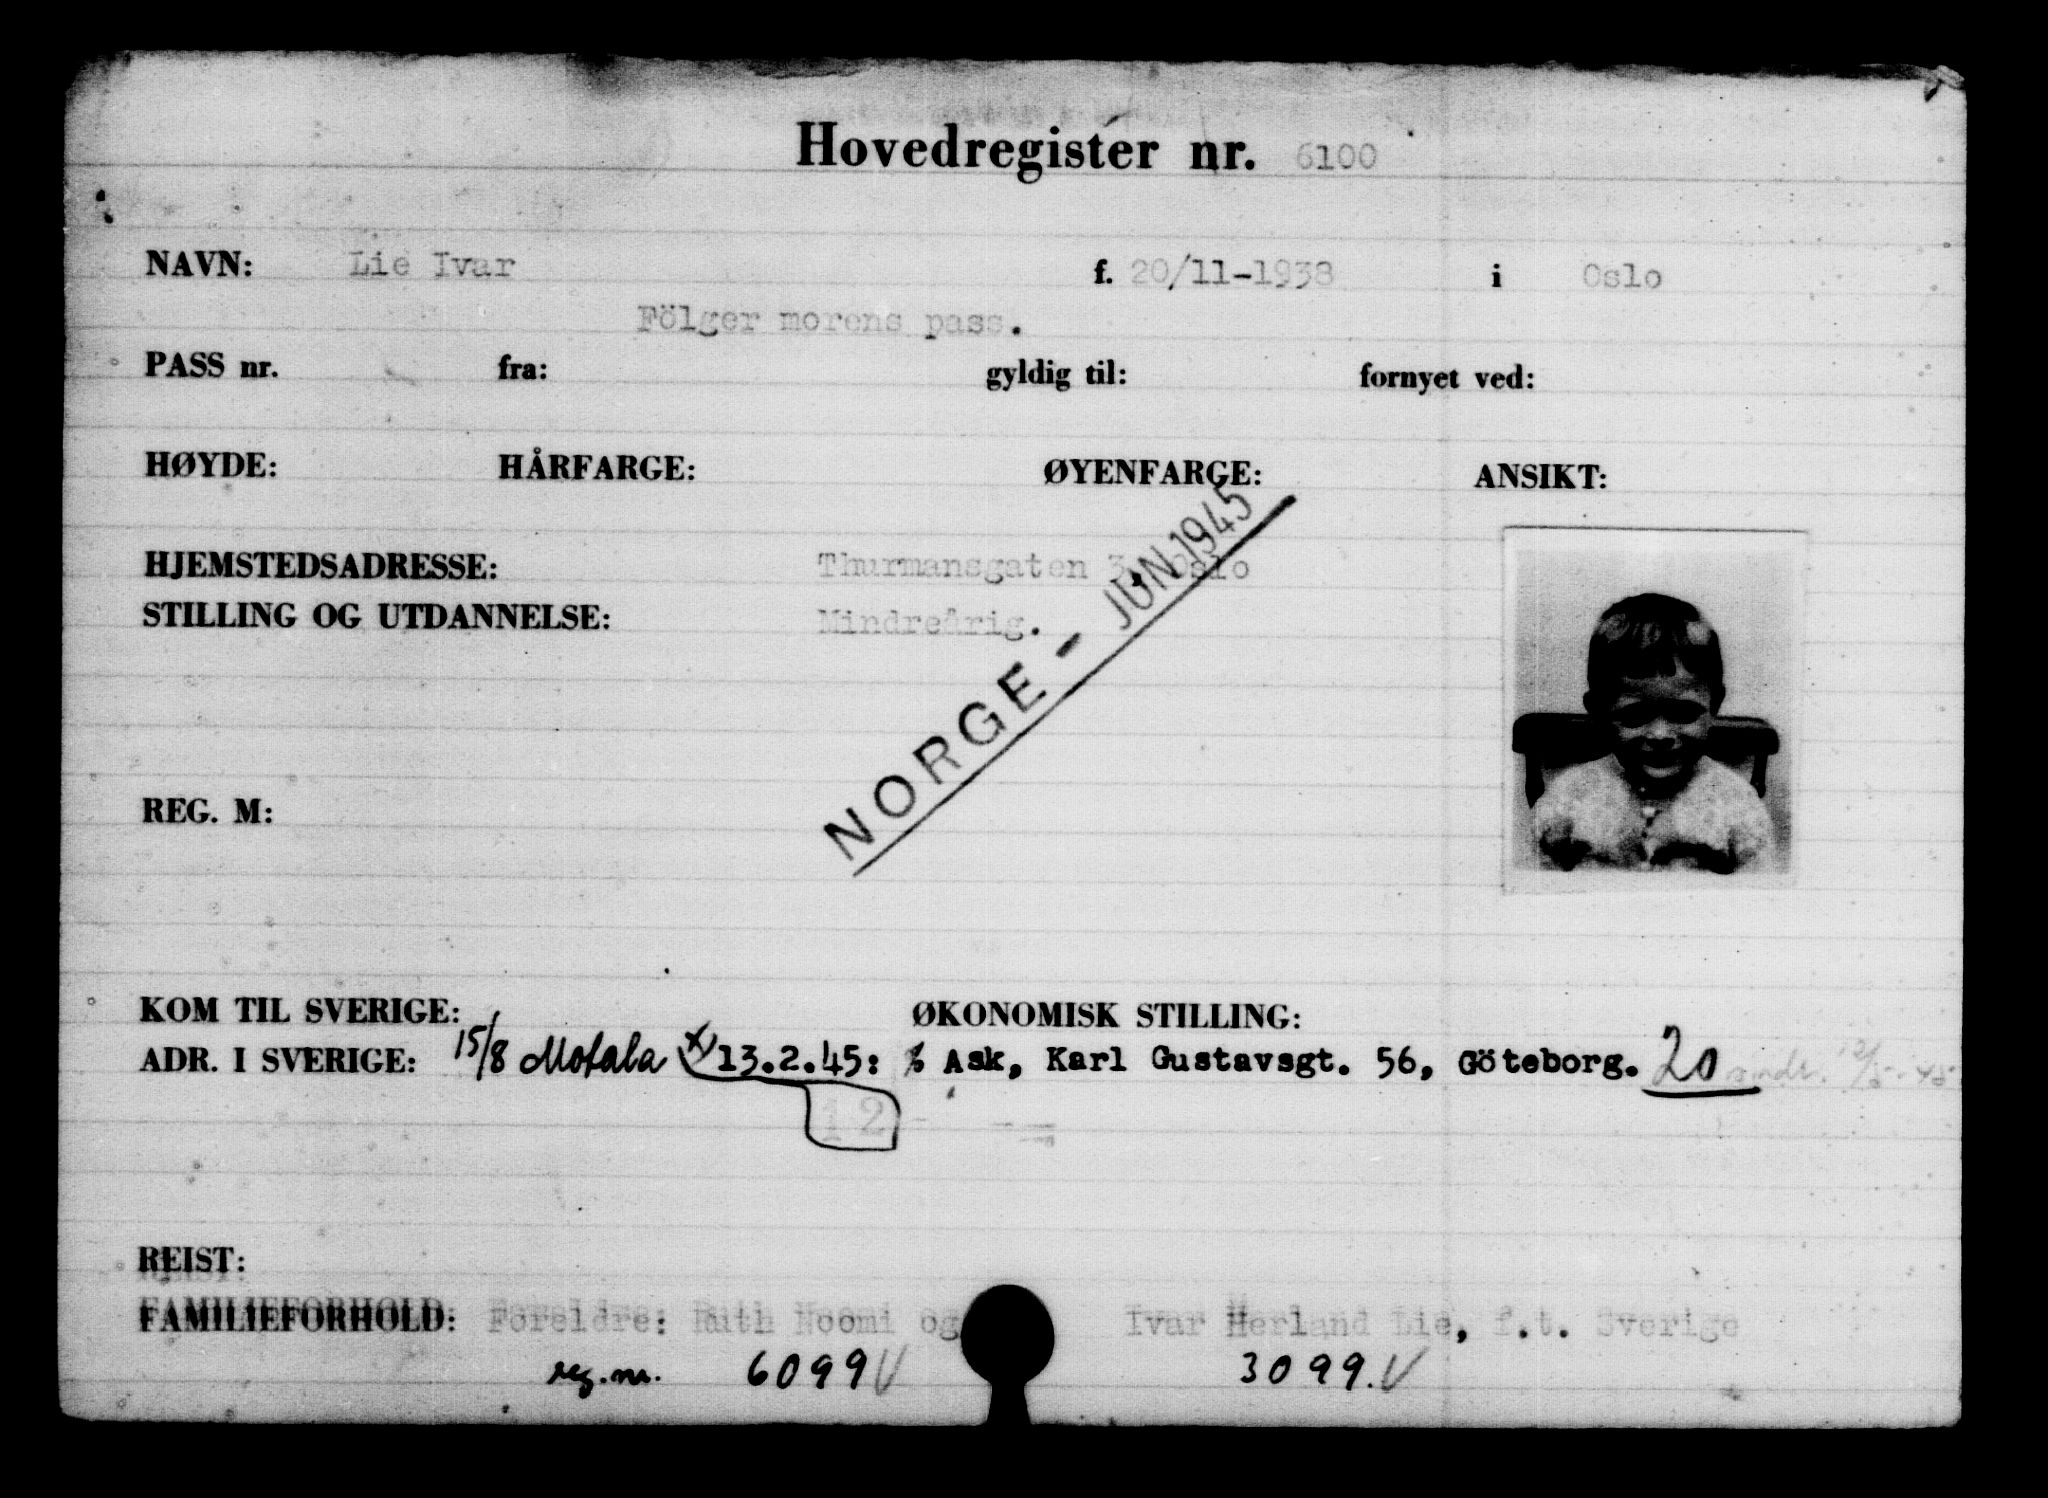 Hovedregister nr. 6100
NAVN: Lie Ivar f. 20/11-1938 i Oslo
Fölger morens pass.
PASS nr. fra: gyldig til: fornyet ved:
HØYDE: HÅRFARGE: ØYENFARGE: ANSIKT:
HJEMSTEDSADRESSE: Thurmansgaten 3, Oslo
STILLING OG UTDANNELSE: Mindreårig.
NORGE - JUN 1945
REG. M:
KOM TIL SVERIGE: ØKONOMISK STILLING:
ADR. I SVERIGE: 15/8 Motala x) 13.2.45: % Ask, Karl Gustavsgt. 56, Göteborg. 20
12
REIST:
FAMILIEFORHOLD: Foreldre: Ruth Noomi og Ivar Herland Lie, f.t. Sverige
reg.nr. 6099 V 3099. V